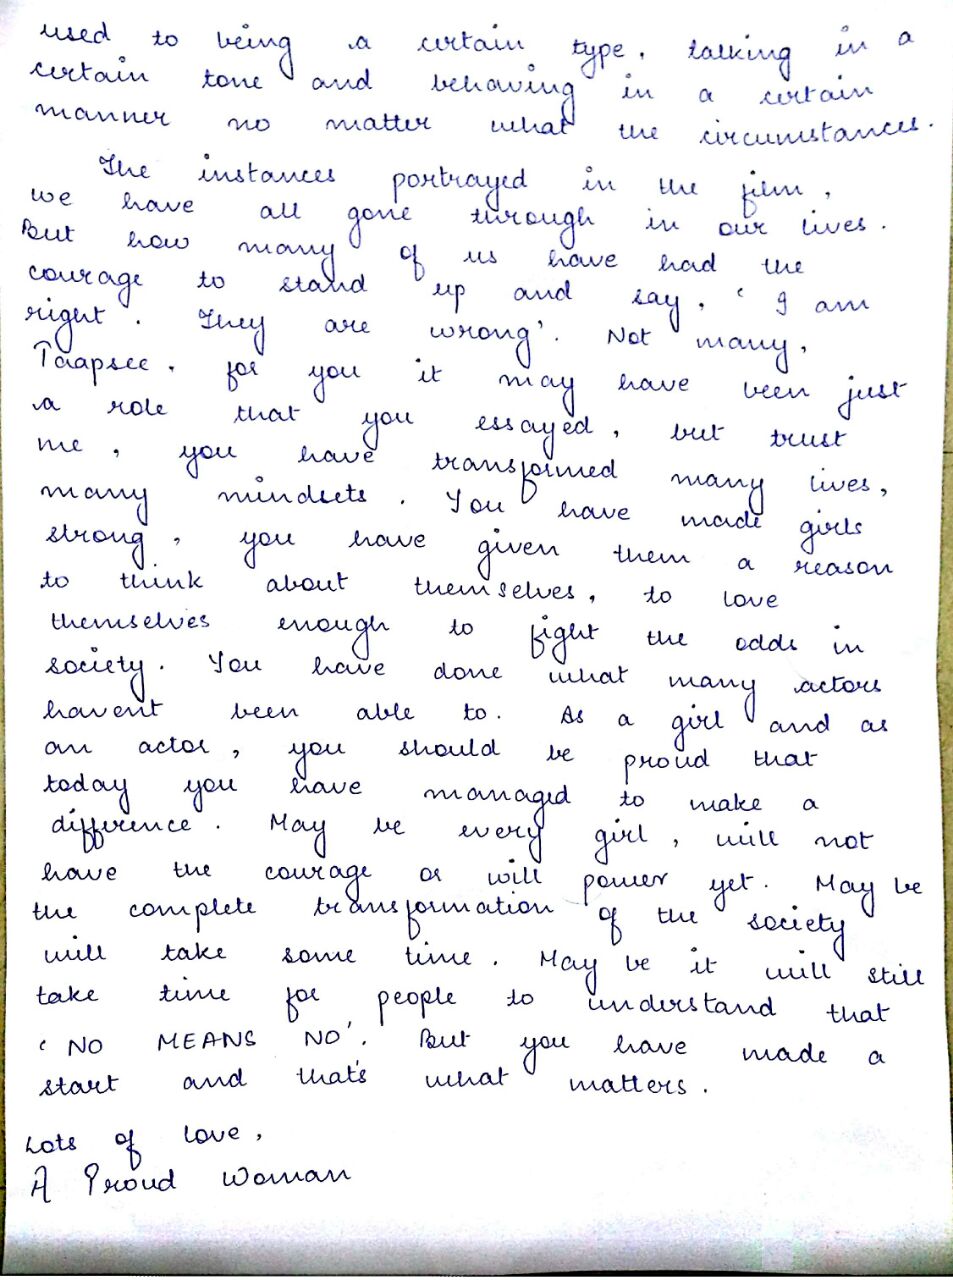 used to being a certain type, talking in a
certain tone and behaving in a certain
manner no matter what the circumstances.
The instances portrayed in the film,
we have all gone through in our lives.
But how many of us have had the
courage to stand up and say, ' I am
right. They are wrong'. Not many,
Taapsee. for you it may have been just
a role that you essayed, but trust
me, you have transformed many lives,
many mindsets. You have made girls
strong, you have given them a reason
to think about themselves, to love
themselves enough to fight the odds in
society. You have done what many actors
havent been able to. As a girl and as
an actor, you should be proud that
today you have managed to make a
difference. May be every girl, will not
have the courage or will power yet. May be
the complete transformation of the society
will take some time. May be it will still
take time for people to understand that
' NO MEANS NO'. But you have made a
start and that's what matters.
Lots of love,
A Proud Woman